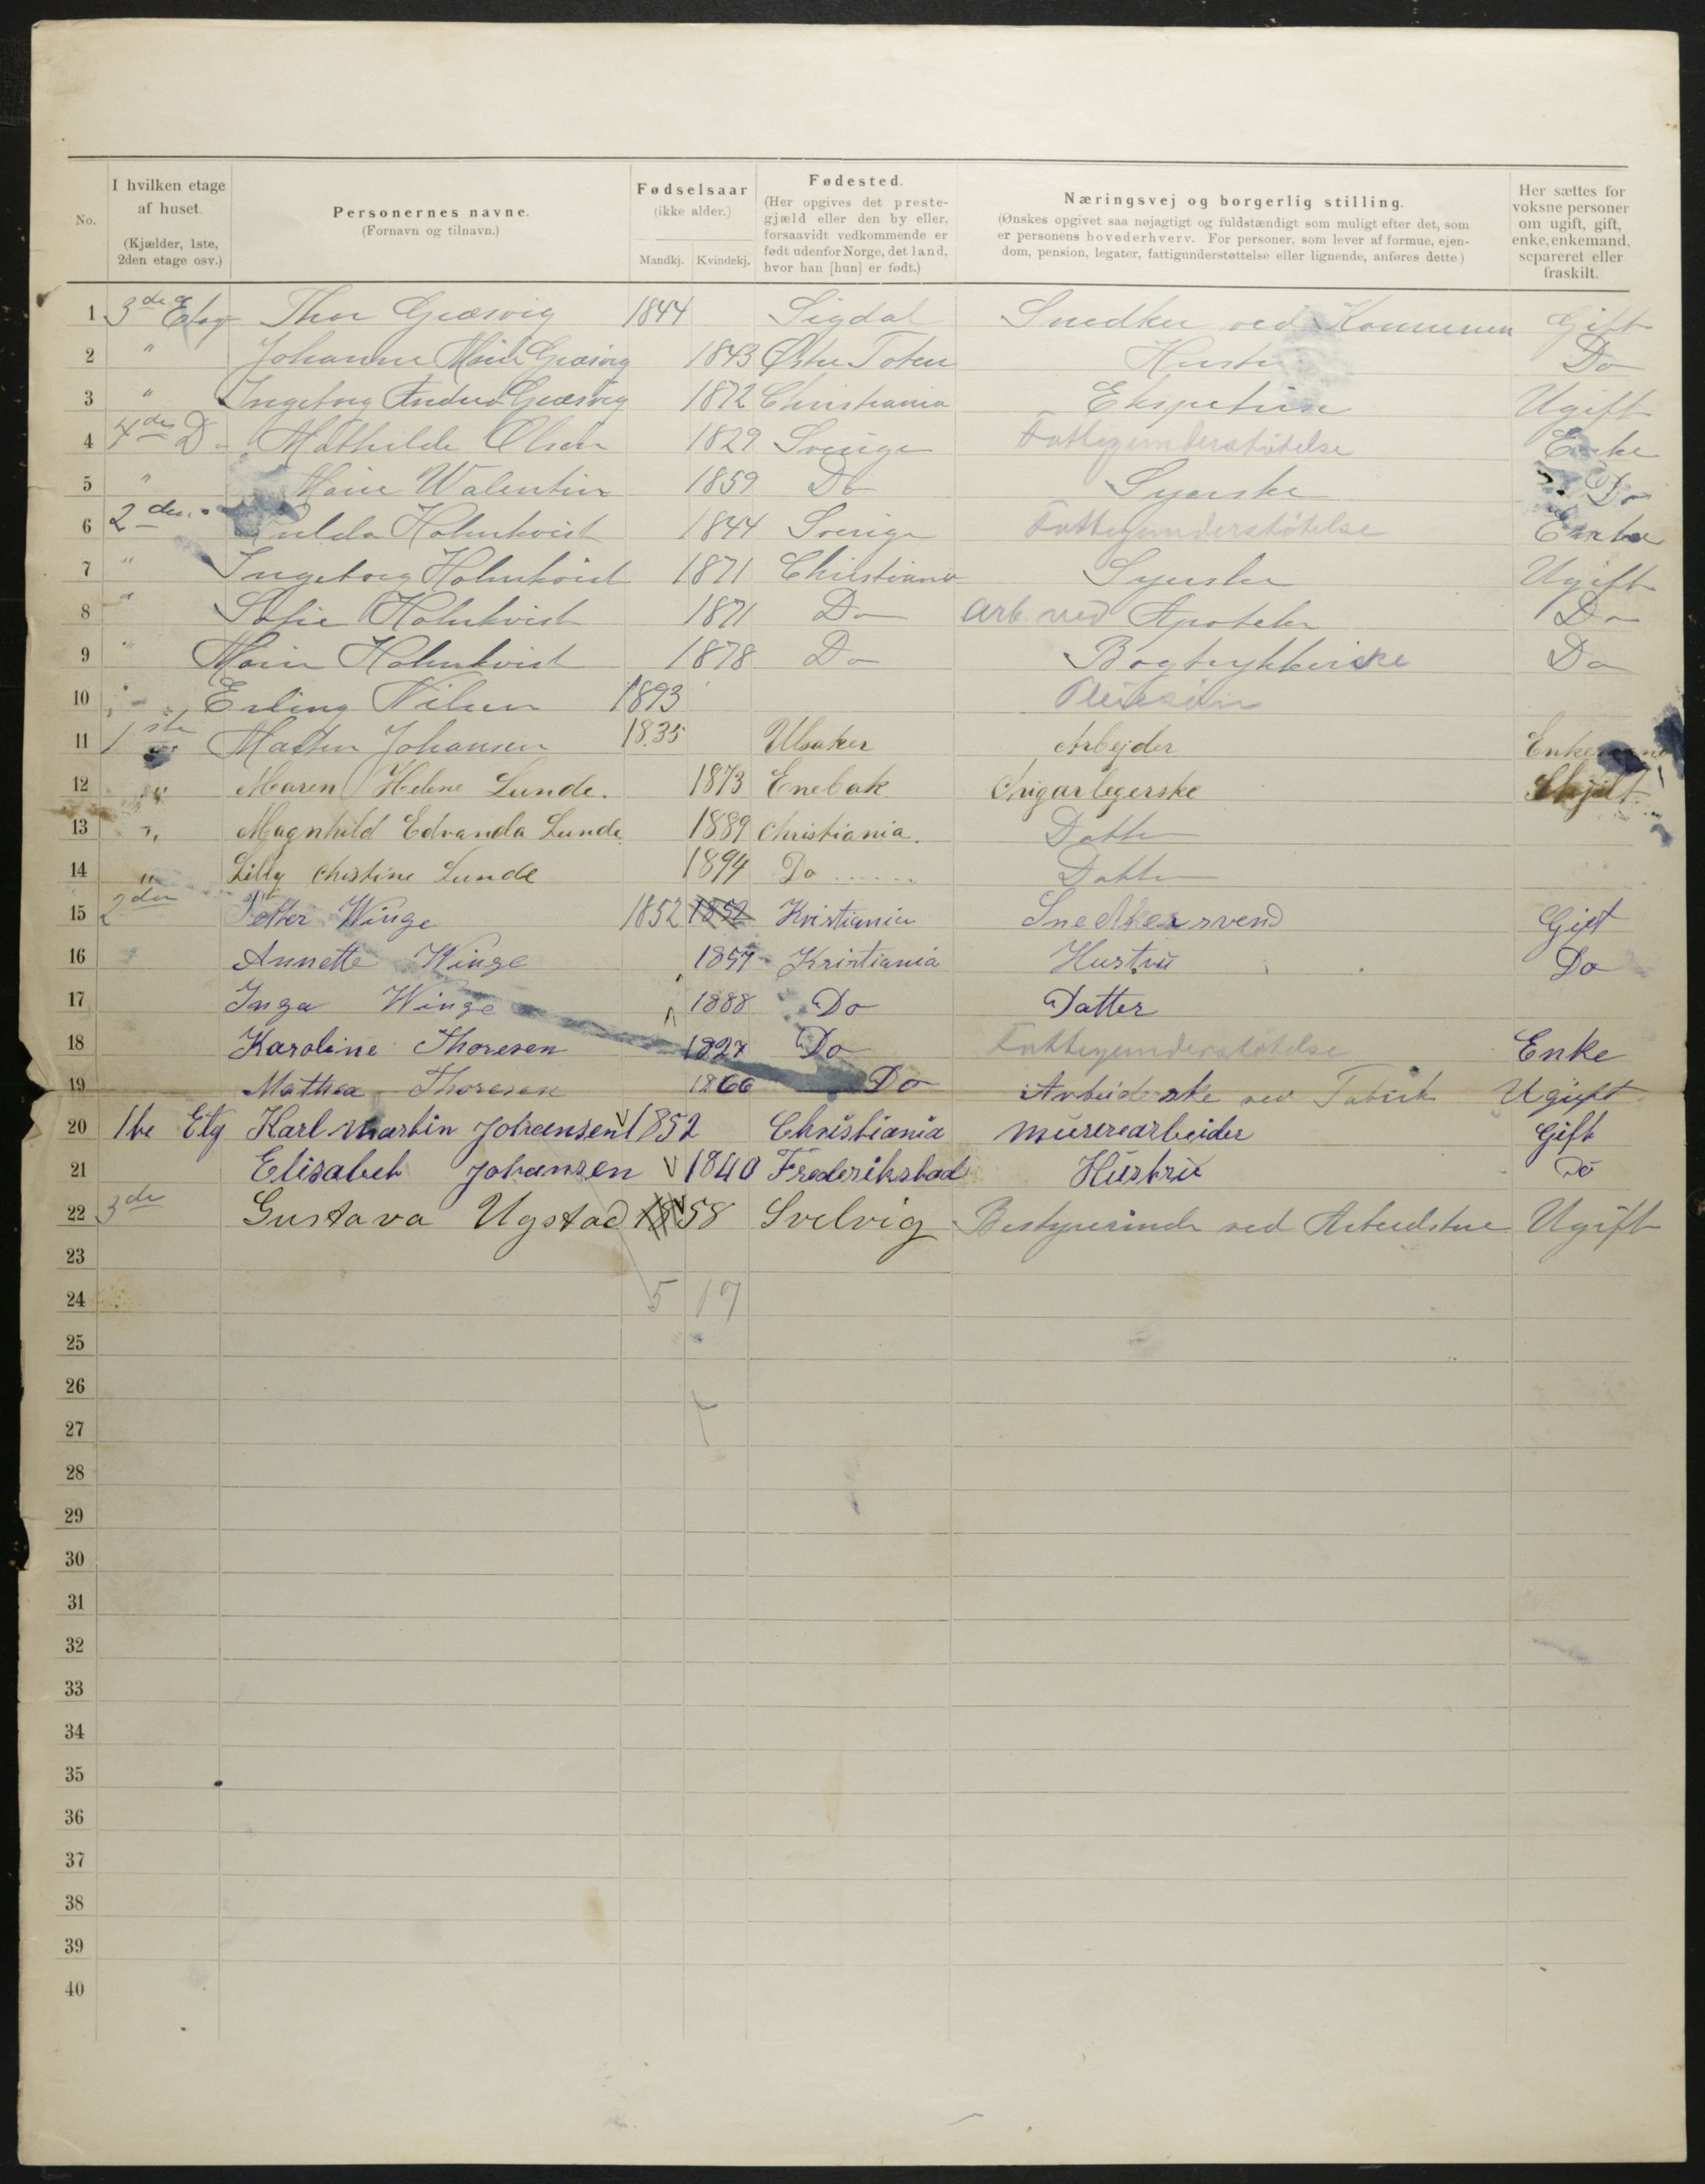 No.
I hvilken etage af huset. (Kjælder, 1ste, 2den etage osv.)
Personernes navne. (Fornavn og tilnavn.)
Fødselsaar (ikke alder.)
Mandkj. Kvindekj.
Fødested. (Her opgives det prestegjæld eller den by eller, forsaavidt vedkommende er født udenfor Norge, det land, hvor han [hun] er født.)
Næringsvej og borgerlig stilling. (Ønskes opgivet saa nøjagtigt og fuldstændigt som muligt efter det, som er personens hovederhverv. For personer, som lever af formue, ejendom, pension, legater, fattigunderstøttelse eller lignende, anføres dette)
Her sættes for voksne personer om ugift, gift, enke, enkemand, separeret eller fraskilt.
1 3de Etag Thor Græsvig 1844 Sigdal Snedker ved Kommunen Gift
2 " Johanne Marie Græsvig 1843 Østre Toten Hustru Do
3 " Ingeborg Andrea Græsvig 1872 Christiania Ekspetrise Ugift
4 4de D Mathilde Olsen 1829 Sverige Fattigunderstøtelse Enke
5 " Marie Walentin 1859 Do Syerske Do
6 2den Hulda Holmkvist 1844 Sverige Fattigunderstøtelse Enke
7 " Ingeborg Holmkvist 1871 Christiania Syerske Ugift
8 " Sofie Holmkvist 1871 Do Arb. ved Apothek Do
9 " Marie Holmkvist 1878 Do Bogtrykkerske Do
10 " Erling Nilsen 1893 Pleiesøn
11 1ste Marten Johansen 1835 Ulsaker Arbejder Enkemand
12 " Maren Helene Lunde. 1873 Enebak Chigarlegerske
13 " Magnhild Edvanda Lunde 1889 Christiania. Datter
14 " Lilly Christine Lunde 1894 Do Datter
15 2den Petter Winge 1852 1852 Kristiania Snedkersvend Gift
16 Annette Winge 1857 Kristiania Hustru Do
17 Inga Winge 1888 Do Datter
18 Karoline Thoresen 1827 Do Fattigunderstøtelse Enke
19 Mathea Thoresen 1866 Do Arbeiderske ved Fabrik Ugift
20 1te Etg Karl Martin Johansen 1852 Christiania Murerarbeider Gift
21 Elisabet Johansen 1840 Frederikstad Hustru Do
22 3de Gustava Ugstad 1858 Svelvig Bestyrerinde ved Arbeidstue Ugift
23
24 5 17
25
26
27
28
29
30
31
32
33
34
35
36
37
38
39
40